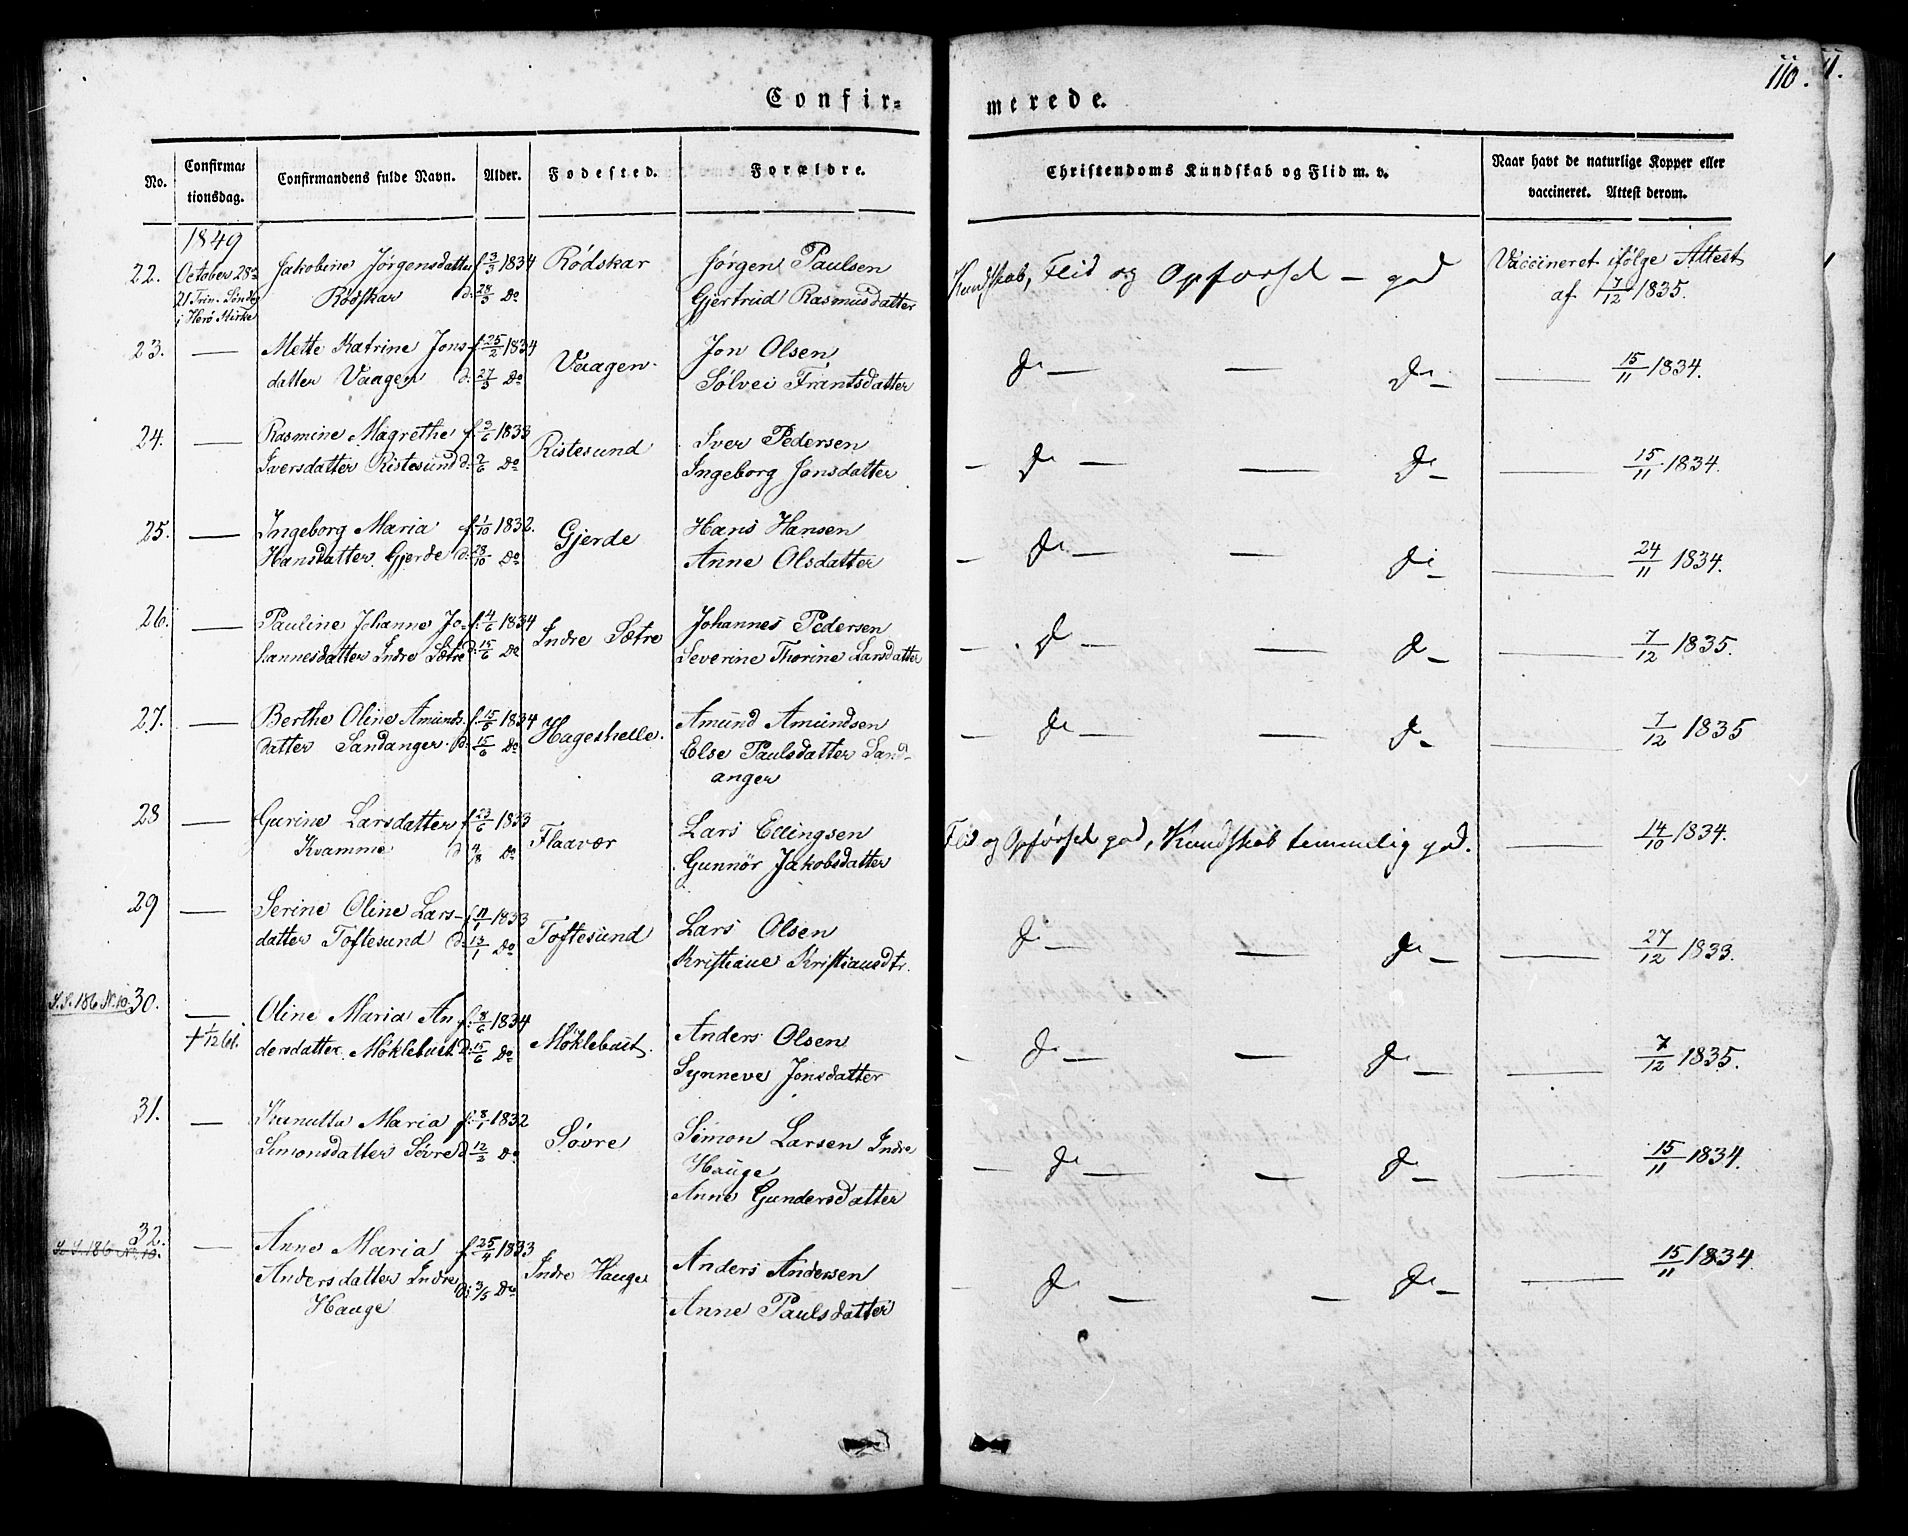 110.
11.
Confir-
merede.
No.
Confirma-
tionsdag.
Confirmandens fulde Navn.
Alder.
Fødested.
Forældre.
Christendoms Kundskab og Flid m. v.
Naar havt de naturlige Kopper eller
vaccineret. Attest derom.
1849
22. October 28de Jakobine Jörgensdatter f. 3/3 1834 Rödskar Jörgen Paulsen Kundskab, Flid og Opförsel – god Vaccineret ifölge Attest
21. Trin. Söndg Rödskar d: 28/3 Do Gjertrud Rasmusdatter af 7/12 1835.
i Herö Kirke
23. — Mette Katrine Jons- f. 25/2 1834 Vaagen. Jon Olsen Do — — Do — — 15/11 1834.
datter Vaagen d: 27/3 Do Sölvei Frantsdatter
24. — Rasmine Magrethe f. 3/6 1833 Ristesund Iver Pedersen – Do — — Do – — 15/11 1834.
Iversdatter Ristesund d: 9/6 Do Ingeborg Jonsdatter
25. — Ingeborg Maria f. 1/10 1832. Gjerde Hans Hansen – Do — — Do – — 24/11 1834.
Hansdatter Gjerde d: 28/10 Do Anne Olsdatter
26. — Pauline Johanne Jo- f. 4/6 1834 Indre Sætre Johannes Pedersen – Do — — Do – — 7/12 1835.
hannesdatter Indre Sætre d: 15/6 Do Severine Thorine Larsdatter
27. — Berthe Oline Amunds- f. 15/5 1834 Hageshelle. Amund Amundsen – Do — — Do – — 7/12 1835
datter Sandanger d: 15/6 Do Else Paulsdatter Sand-
anger
28 — Gurine Larsdatter f. 23/6 1833 Flaavær Lars Ellingsen Flid og Opförsel god, Kundskab temmelig god. — 14/10 1834.
Kvamme d 4/8 Do Gunnör Jakobsdatter
29 — Serine Oline Lars- f. 11/1 1833 Toftesund Lars Olsen Do — Do — — 27/12 1833.
datter Toftesund d: 13/1 Do Kristiane Kristiansdtr.
S.S. 186 N. 10. 30. — Oline Maria An- f. 8/6 1834 Möklebust. Anders Olsen – Do — — Do — — 7/12 1835.
† 1/12 61. dersdatter Möklebust d: 15/6 Do Synneve Jonsdatter
31. — Knnutta Maria f. 8/1 1832 Sövre Simon Larsen Indre — Do — — Do – — 15/11 1834.
Simonsdatter Sövre d 12/2 Do Hauge
Anne Gundersdatter
32. — Anne Maria f. 25/4 1833 Indre Hauge Anders Andersen – Do — — Do – — 15/11 1834.
S.S. 186 No. 10. Andersdatter Indre d: 3/5 Do Anne Paulsdatter
Hauge